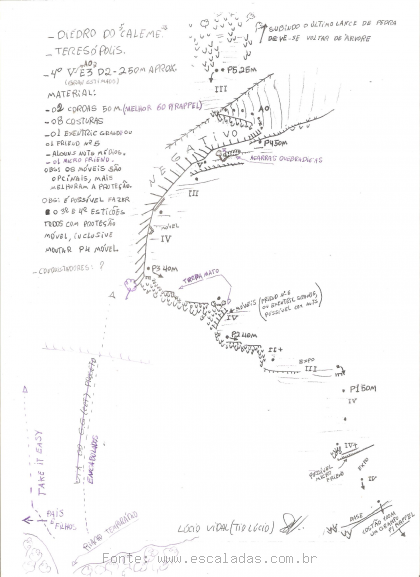 - DIEDRO DO "CALEME"
- TERESÓPOLIS.
- 4º V A0 E3 D2 - 250M APROX
(GRAU ESTIMADO)
MATERIAL:
- 02 CORDAS 50 M. (MELHOR 60 P/RAPPEL)
- 08 COSTURAS
- 01 EXENTRIC GRANDE OU
01 FRIEND Nº 5
- ALGUNS NUTS MÉDIOS.
- 01 MICRO FRIEND.
OBS: OS MÓVEIS SÃO
OPCINAIS, MAIS
MELHORAM A PROTEÇÃO.
OBS: É POSSÍVEL FAZER
O 3º E 4º ESTICÕES
TODOS COM PROTEÇÃO
MÓVEL, INCLUSIVE
MONTAR P4 MÓVEL
- CONQUISTADORES: ?
SUBINDO O ÚLTIMO LANCE DE PEDRA
DEVE-SE VOLTAR DE ÁRVORE
P5 25M
III
A0
NEGATIVO
P4 50M
AGARRAS QUEBRADIÇAS
III
MÓVEL
IV
P3 40M
TREPA MATO
MÓVEIS
IV
P2 40M
II+
EXPO
III
P1 50M
IV
IV+
POSSÍVEL
MICRO
FRIEND
EXPO
IV
BASE
COSTÃO COM
UM GRANDE
PLATEL
TAKE IT EASY
PAIS
E
FILHOS
LÚCIO VIDAL (TIO LÚCIO)
Fonte: www.escaladas.com.br